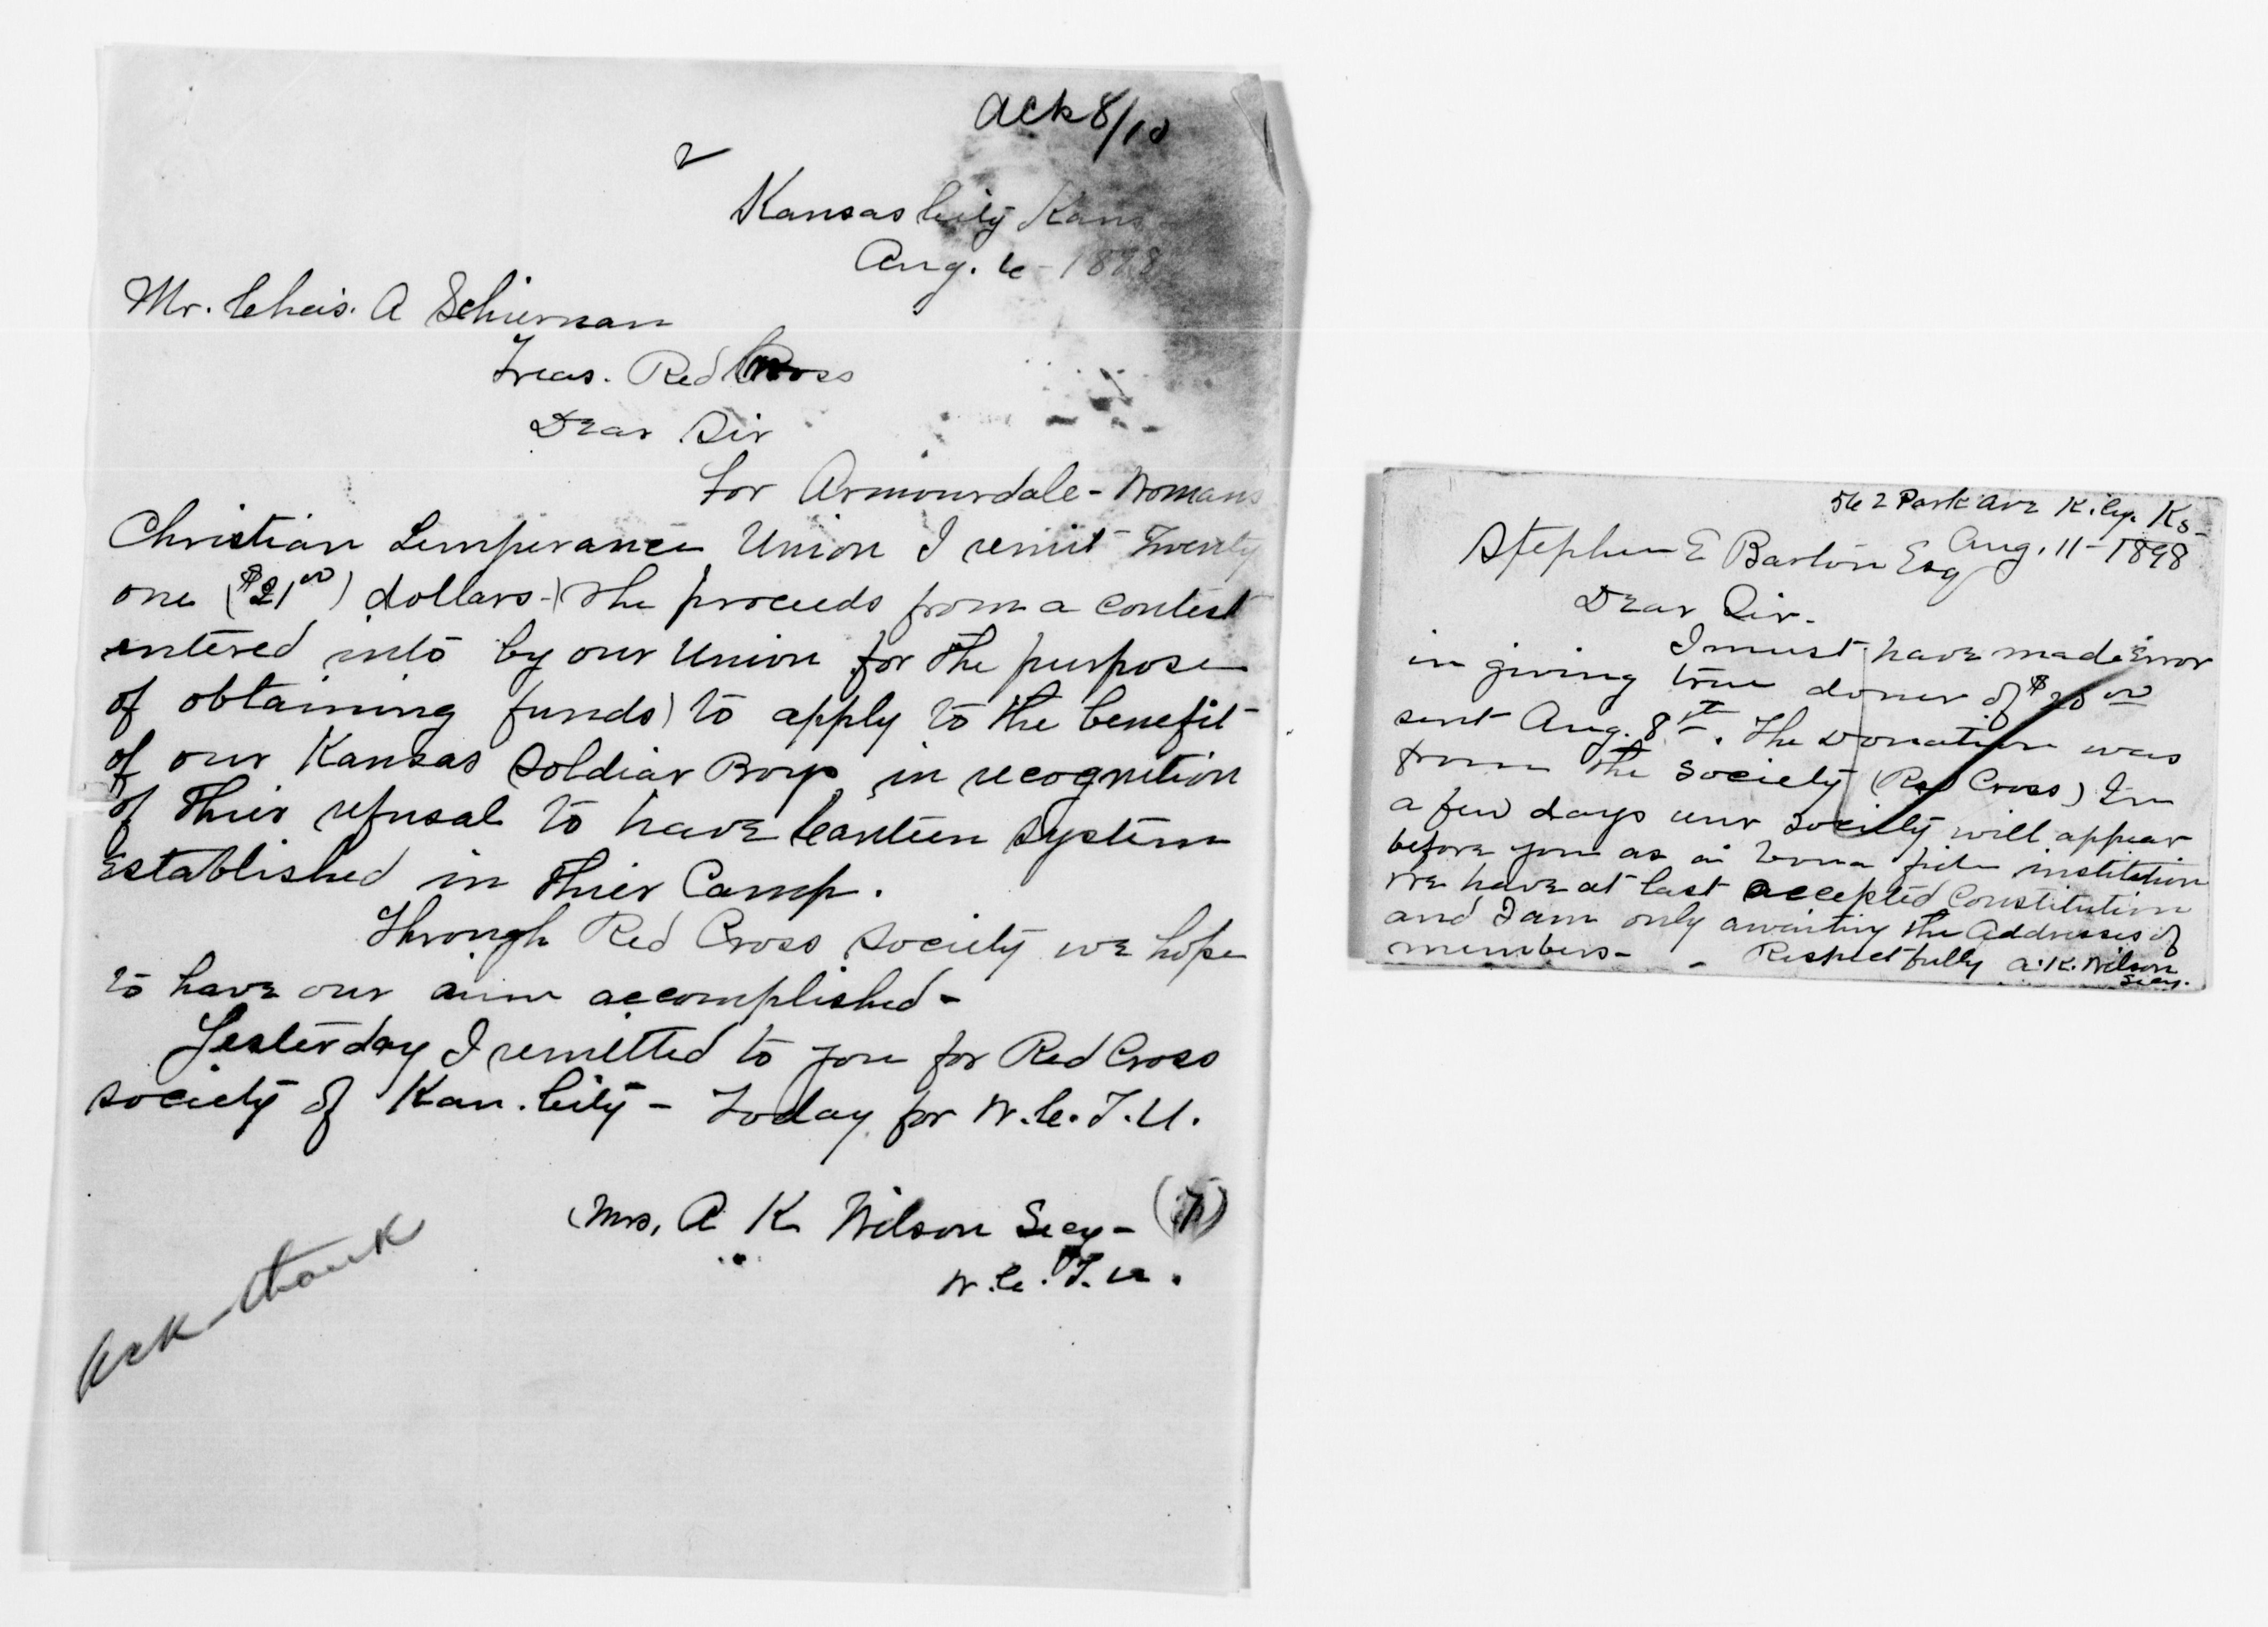 Ack 8/10
Kansas City Kans
Aug. 6 - 1898
Mr. Chas. A Schierman
Treas. Red Cross
Dear Sir
For Armourdale - Womans
Christian Temperance Union I remit Twenty
one ($21.00) dollars - (The proceeds from a contest
entered into by our Union for the purpose
of obtaining funds) to apply to the benefit
of our Kansas Soldiar Boys in recognition
of thier refusal to have Canteen System
Established in thier Camp.
Through Red Cross Society we hope
to have our aim accomplished -
Yesterday I remitted to you for Red Cross
Society of Kan. City - Today for W.C.T.U.
Mrs. A K Wilson Secy -
W.C.T.U.
Ack - thank
562 Park Ave K. Cy. Ks -
Aug. 11 - 1898
Stephen E Barton Esq
Dear Sir -
I must have made Error
in giving true doner of $20.00
sent Aug. 8th. The Donation was
from the Society (Red Cross) In
a few days our Society will appear
before you as a bona fide institution
We have at last accepted Constitution
and I am only awaiting the Addresses of
members - - Respectfully A. K. Wilson
Secy.